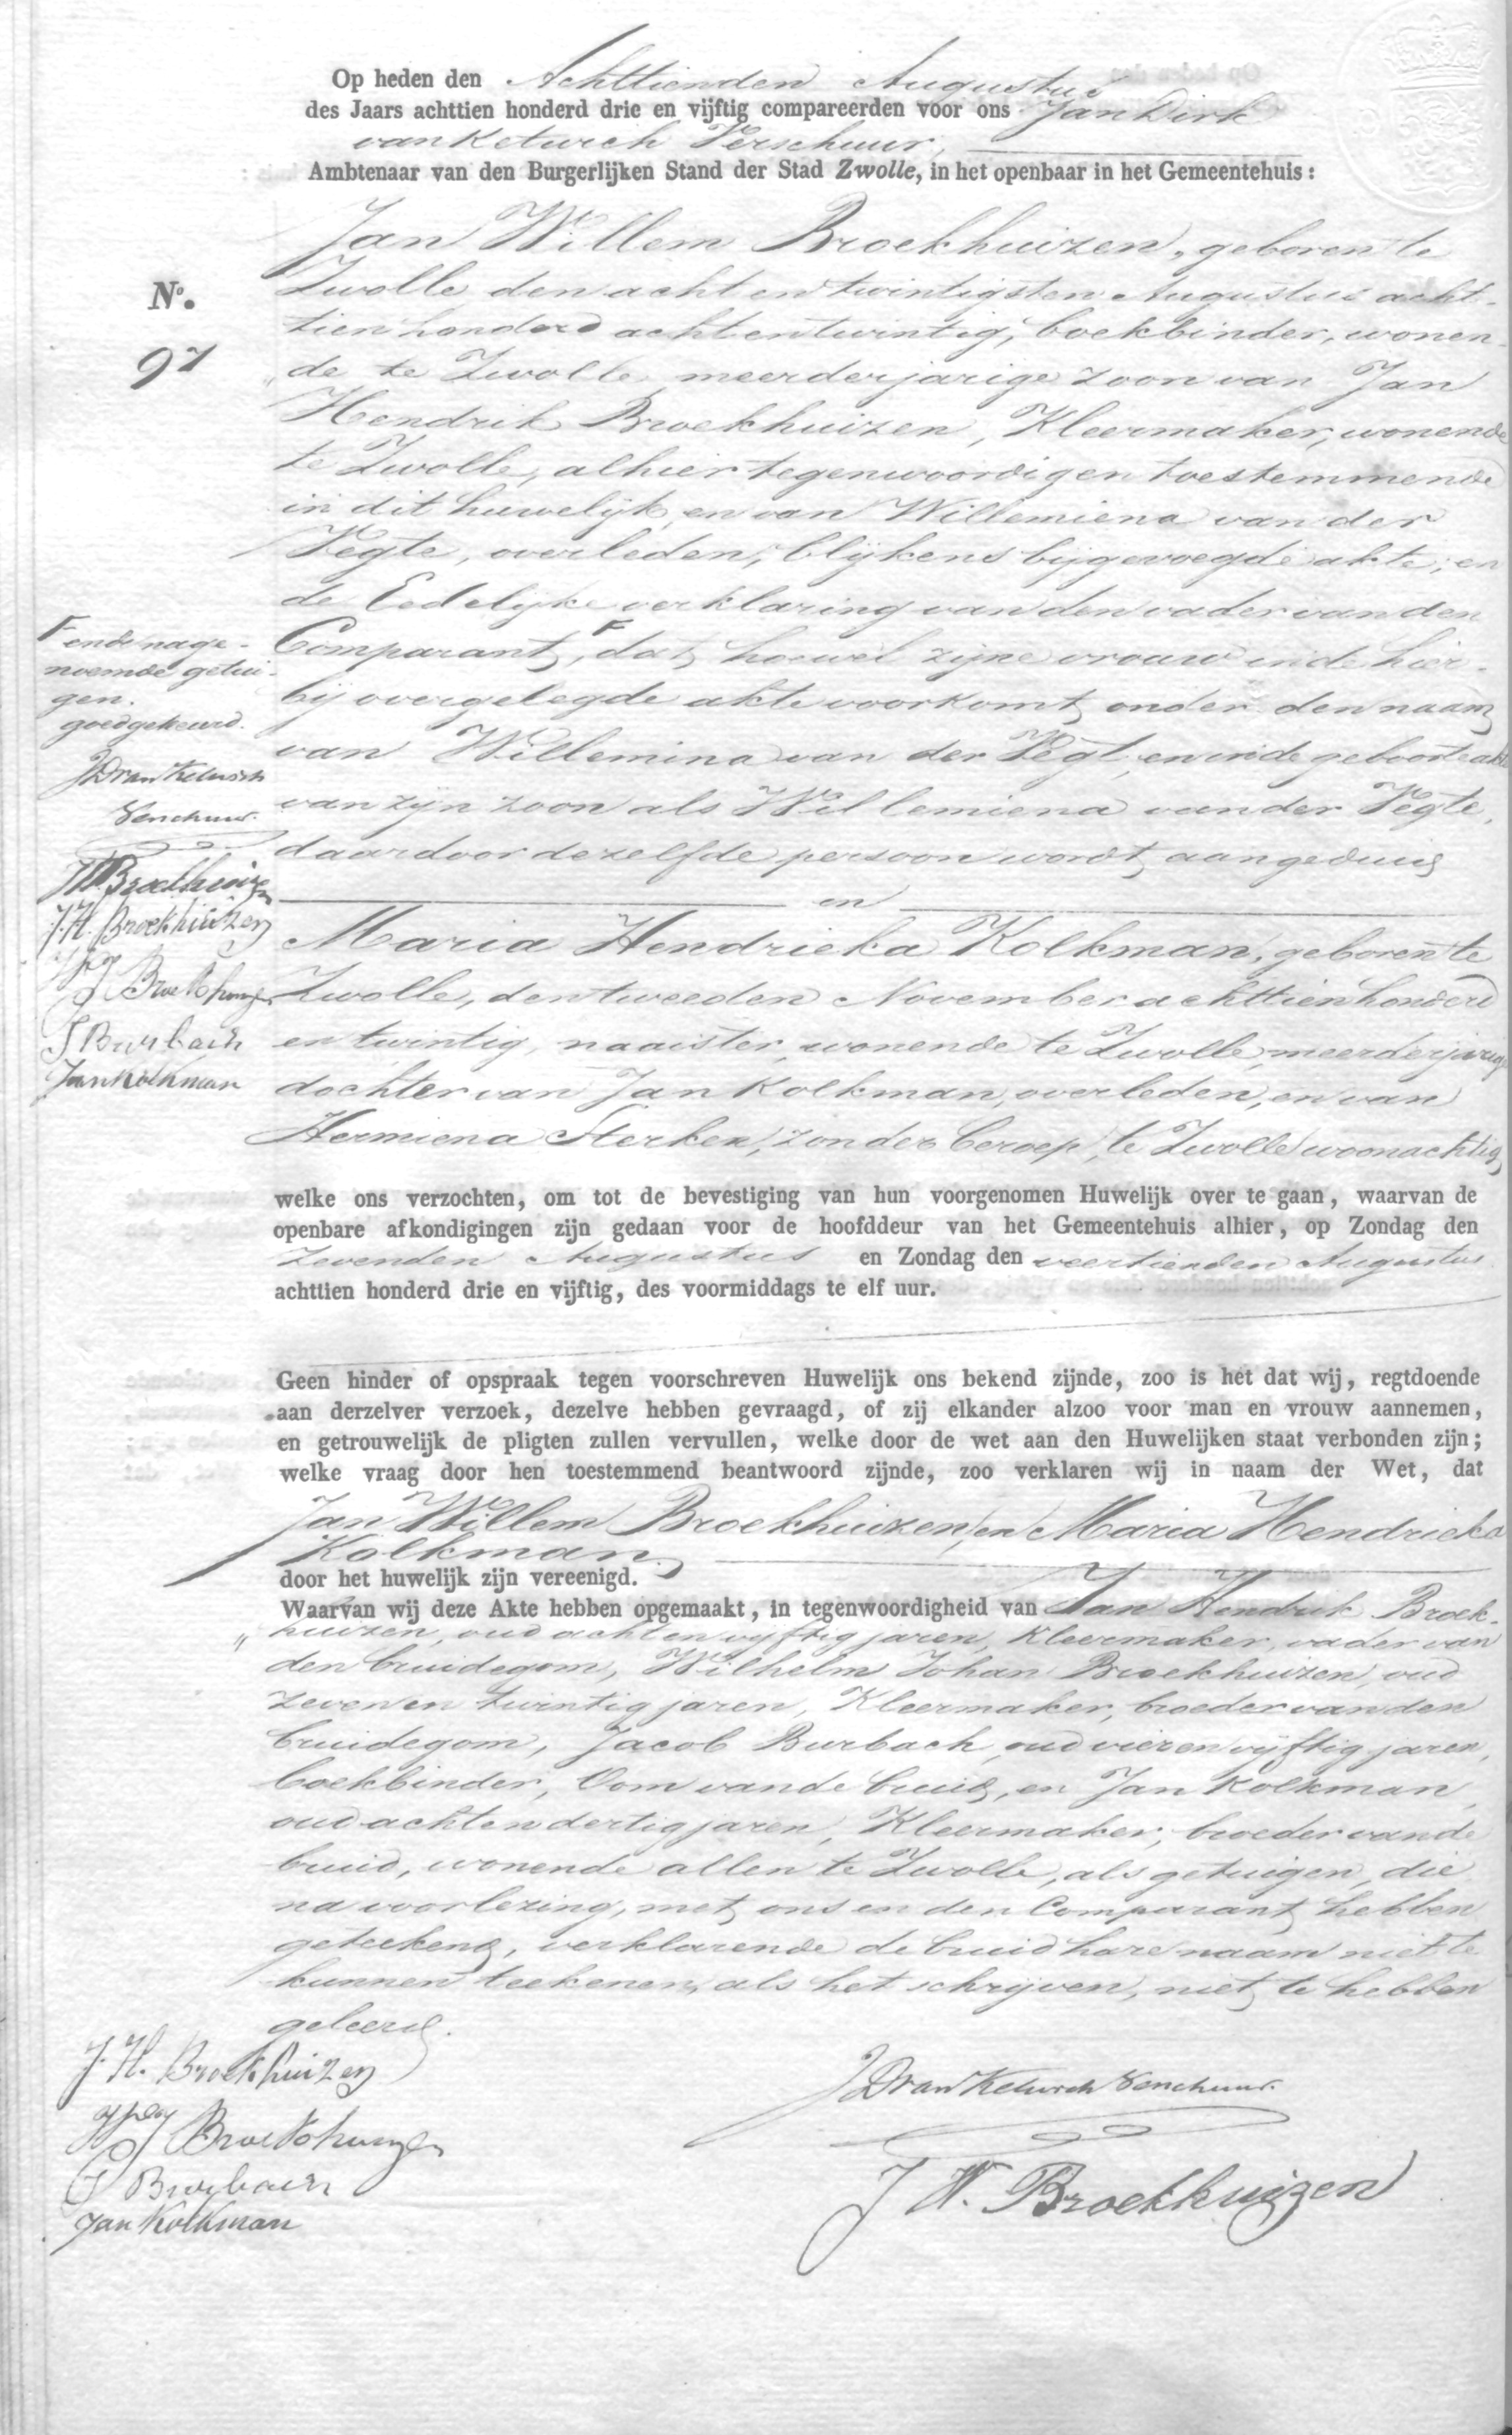 Op heden den Achttienden Augustus
des Jaars achttien honderd drie en vijftig compareerden voor ons Jan Dirk
van Ketwich Verschuur,
Ambtenaar van den Burgerlijken Stand der Stad Zwolle, in het openbaar in het Gemeentehuis:
No.
97
Jan Willem Broekhuizen, geboren te
Zwolle den acht en twintigsten Augustus acht-
tien honderd acht en twintig, boekbinder, wonen-
de te Zwolle meerderjarige zoon van Jan
Hendrik Broekhuizen, Kleermaker, wonende
te Zwolle, alhier tegenwoordig en toestemmende
in dit huwelijk, en van Willemiena van der
Vegte, overleden, blijkens bijgevoegde akte; en
de Eedelijke verklaring van den vader van den
Comparant, F dat hoewel zijne vrouw in de hier-
bij overgelegde akte voorkomt onder den naam
van Willemina van der Vegt, en in de geboorteakte
van zijn zoon als Willemiena van der Vegte,
daardoor dezelfde persoon wordt aangeduid
en
F en de nage-
noemde getui-
gen.
goedgekeurd.
JD van Ketwich
Verschuur.
JW Broekhuizen
J.H. Broekhuizen
WJ Broekhuizen
J Burbach
Jan Kolkman
Maria Hendrieka Kolkman, geboren te
Zwolle, den tweeden November achttien honderd
en twintig, naaister, wonende te Zwolle, meerderjarige
dochter van Jan Kolkman, overleden, en van
Hermiena Sterken, zonder beroep, te Zwolle woonachtig,
welke ons verzochten, om tot de bevestiging van hun voorgenomen Huwelijk over te gaan, waarvan de
openbare afkondigingen zijn gedaan voor de hoofddeur van het Gemeentehuis alhier, op Zondag den
zevenden Augustus en Zondag den veertienden Augustus
achttien honderd drie en vijftig, des voormiddags te elf uur.
Geen hinder of opspraak tegen voorschreven Huwelijk ons bekend zijnde, zoo is het dat wij, regtdoende
aan derzelver verzoek, dezelve hebben gevraagd, of zij elkander alzoo voor man en vrouw aannemen,
en getrouwelijk de pligten zullen vervullen, welke door de wet aan den Huwelijken staat verbonden zijn;
welke vraag door hen toestemmend beantwoord zijnde, zoo verklaren wij in naam der Wet, dat
Jan Willem Broekhuizen, en Maria Hendrieka
Kolkman
door het huwelijk zijn vereenigd.
Waarvan wij deze Akte hebben opgemaakt, in tegenwoordigheid van Jan Hendrik Broek-
huizen, oud acht en vijftig jaren, Kleermaker, vader van
den bruidegom, Wilhelm Johan Broekhuizen, oud
zeven en twintig jaren, Kleermaker, broeder van den
bruidegom, Jacob Burbach, oud vier en vijftig jaren,
boekbinder, Oom van de bruid, en Jan Kolkman,
oud acht en dertig jaren, Kleermaker, broeder van de
bruid, wonende allen te Zwolle, als getuigen, die
na voorlezing, met ons en den Comparant hebben
geteekend, verklarende de bruid hare naam niet te
kunnen teekenen, als het schrijven, niet te hebben
geleerd.
J.H. Broekhuizen
WJ Broekhuizen
J Burbach
Jan Kolkman
JD van Ketwich Verschuur.
J W. Broekhuizen